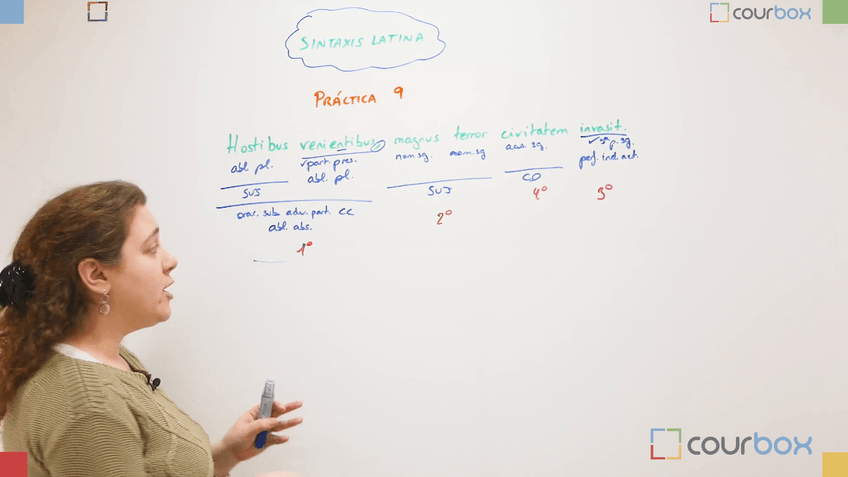 courbox
SINTAXIS LATINA
PRÁCTICA 9
Hostibus venientibus, magnus terror civitatem invasit.
abl. pl. part. pres. nom. sg. nom. sg acus. sg. 3ª p. sg.
abl. pl. perf. ind. act.
SUJ SUJ CD
orac. sub. adv. part. CC 2º 4º 3º
abl. abs.
1º
courbox